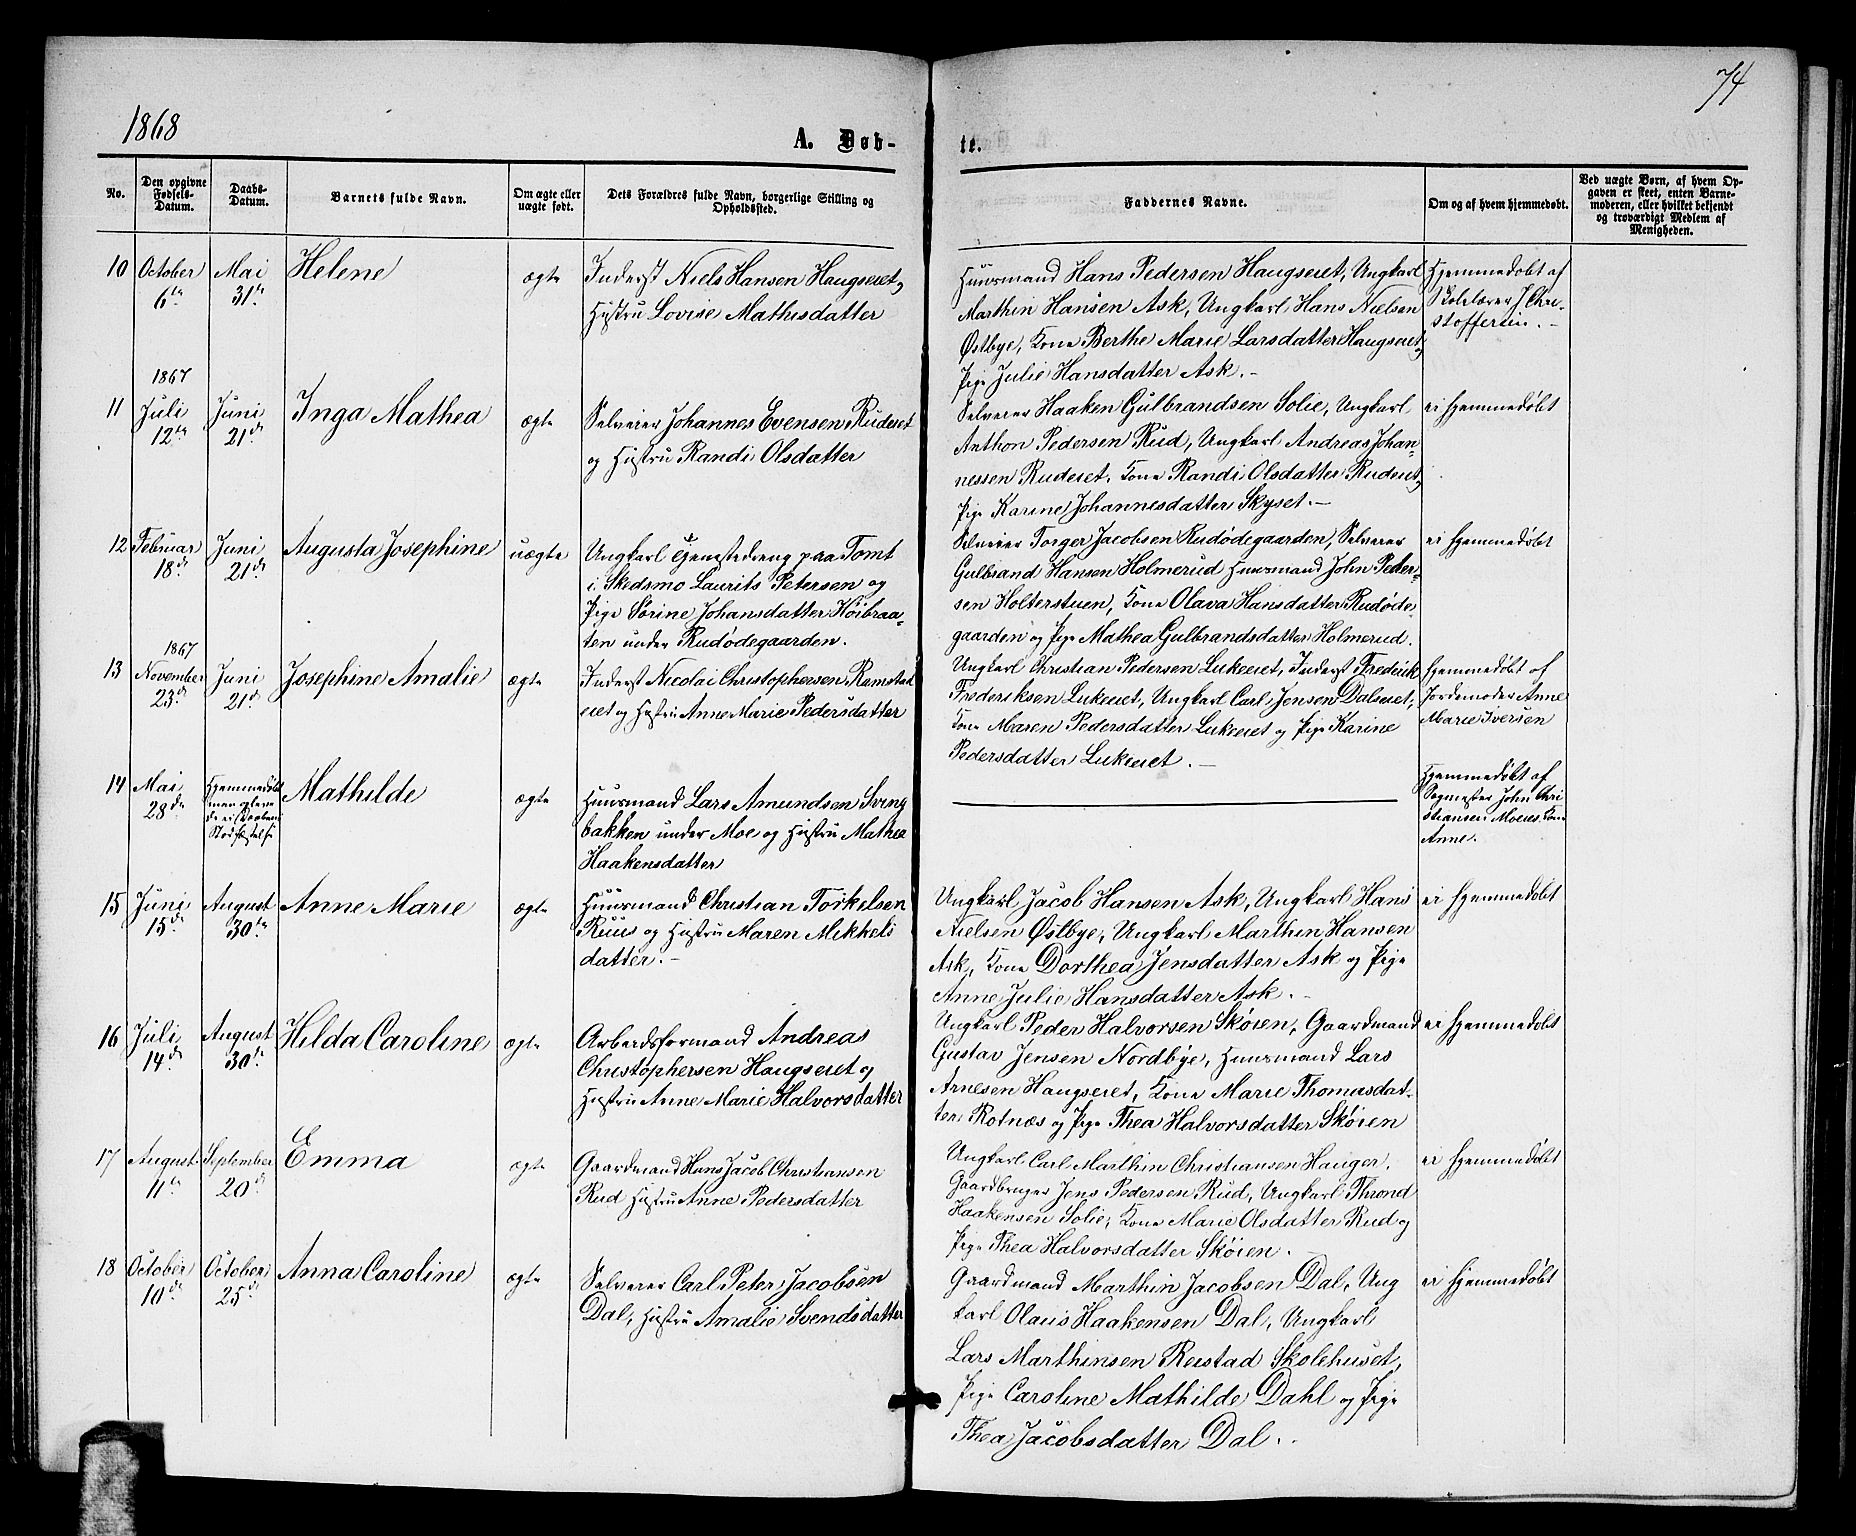 74
1868
A. Døb-
te.
No.
Den opgivne Fødsels-Datum.
Daabs-Datum.
Barnets fulde Navn.
Om ægte eller uægte født.
Dets Forældres fulde Navn, borgerlige Stilling og Opholdssted.
Faddernes Navne.
Om og af hvem hjemmedøbt.
Ved uægte Børn, af hvem Opgaven er skeet, enten Barnemoderen, eller hvilket bekjendt og troværdigt Medlem af Menigheden.
10 October 6te Mai 31te Helene ægte
Inderst Niels Hansen Haugseret og
Hustru Lovise Mathisdatter
Huusmand Hans Pedersen Haugseret, Ungkarl
Marthin Hansen Ask, Ungkarl Hans Nielsen
Østbye, Kone Berthe Marie Larsdatter Haugseret og
Pige Julie Hansdatter Ask.-
Hjemmedøbt af
Skolelærer J. Chri-
stoffersen.-
1867
11 Juli 12te Juni 21de Inga Mathea ægte
Selveier Johannes Evensen Ruderet
og Hustru Randi Olsdatter
Selveier Haaken Gulbrandsen Solie, Ungkarl
Anthon Pedersen Rud, Ungkarl Andreas Johan-
nessen Ruderet, Kone Randi Olsdatter Ruderet og
Pige Karine Johannesdatter Skyset.-
ei hjemmedøbt
12 Februar 18de Juni 21de Augusta Josephine uægte
Ungkarl Tjenestedreng paa Tomt
i Skedsmo Laurits Petersen og
Pige Sørine Johansdatter Køibraa-
ten under Rudødegaarden.
Selveier Torger Jacobsen Rudødegaarden, Selveier
Gulbrand Hansen Holmerud Huusmand John Peder-
sen Holterstuen, Kone Olava Hansdatter Rudøde-
gaarden og Pige Mathea Gulbrandsdatter Holmerud.
ei hjemmedøbt
1867
13 November 23de Juni 21de Josephine Amalie ægte
Inderst Nicolai Christophersen Ramstad
eiet og Hustru Anne Marie Pedersdatter
Ungkarl Christian Pedersen Lukeeiet, Inderst Frederik
Frederiksen Lukeeiet, Ungkarl Carl Jensen Dalseiet,
Kone Maren Pedersdatter Lukeeiet og Pige Karine
Pedersdatter Lukeeiet.-
Hjemmedøbt af
Jordemoder Anne
Marie Iversen
14 Mai 28de
Hjemmedøbt
Mathilde ægte
Huusmand Lars Amundsen Sving
bakken under Moe og Hustru Mathea
Haakensdatter
Hjemmedøbt af
Sogmester John Chri
stiansen Moeeies Kone
Anne.
15 Juni 15de August 30te Anne Marie ægte
Huusmand Christian Torkelsen
Ruus og Hustru Maren Mikkels
datter.-
Ungkarl Jacob Hansen Ask, Ungkarl Hans
Nielsen Østbye, Ungkarl Marthin Hansen
Ask, Kone Dorthea Jensdatter Ask og Pige
Anne Julie Hansdatter Ask.-
ei hjemmedøbt
16 Juli 14de August 30te Hilda Caroline ægte
Arbeidsformand Andreas
Christophersen Haugseret og
Hustru Anne Marie Halvorsdatter
Ungkarl Peder Halvorsen Skøien, Gaardmand
Gustav Jensen Nordbye, Huusmand Lars
Arnesen Haugseret, Kone Marie Thomasdat-
ter Rotnæs og Pige Thea Halvorsdatter Skøien
ei hjemmedøbt
17 August 11te September 20de Emma ægte
Gaardmand Hans Jacob Christiansen
Rud Hustru Anne Pedersdatter
Ungkarl Carl Marthin Christiansen Hauger.
Gaardbruger Jens Pedersen Rud, Ungkarl Thrond
Haakensen Solie, Kone Marie Olsdatter Rud og
Pige Thea Halvorsdatter Skøien.
ei hjemmedøbt
18 October 10de October 25de Anna Caroline ægte
Selveier Carl Peter Jacobsen
Dal, Hustru Amalie Svendsdatter
Gaardmand Marthin Jacobsen Dal, Ung
karl Olaus Haakensen Dal, Ungkarl
Lars Marthinsen Reistad Skolehuset,
Pige Caroline Mathilde Dahl og Pige
Thea Jacobsdatter Dal..
ei hjemmedøbt